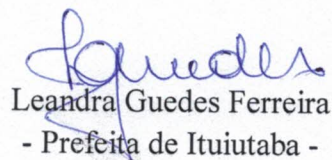 Leandra Guedes Ferreira
- Prefeita de Ituiutaba -